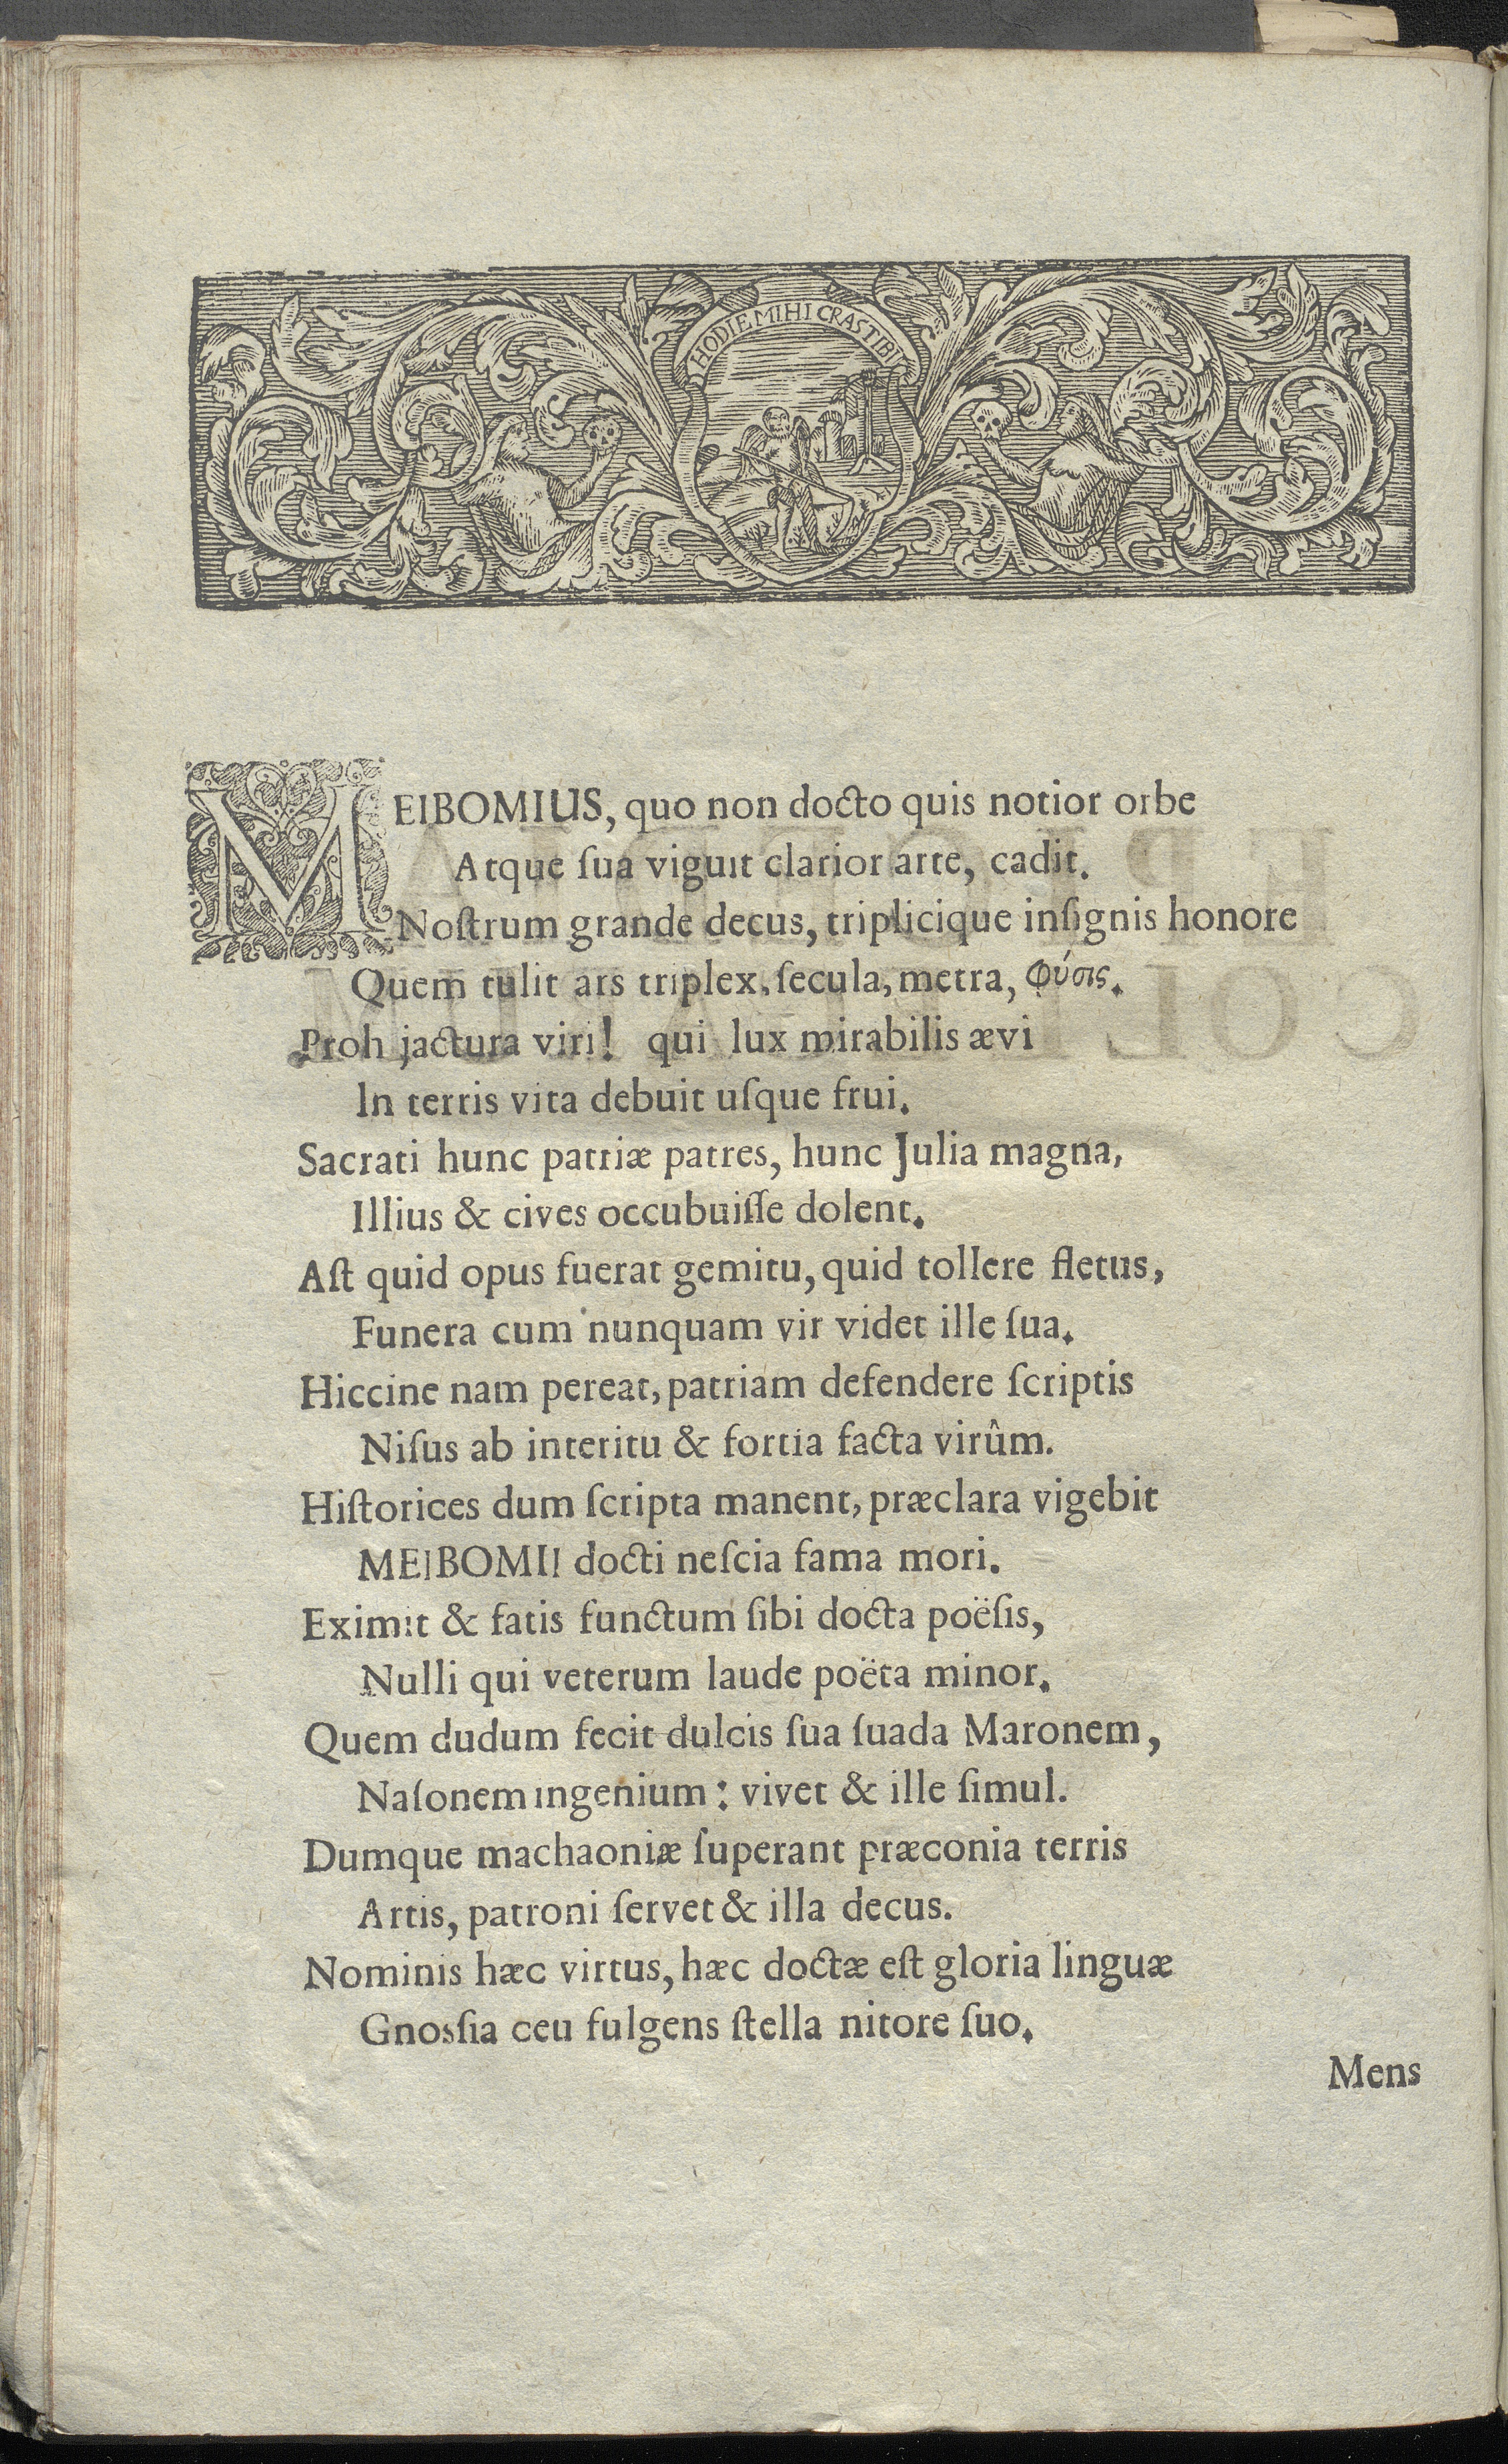 HODIE MIHI CRAS TIBI
MEIBOMIUS, quo non docto quis notior orbe
Atque ſua viguit clarior arte, cadit.
Noſtrum grande decus, triplicique inſignis honore
Quem tulit ars triplex, ſecula, metra, φύσις.
Proh jactura viri! qui lux mirabilis ævi
In terris vita debuit uſque frui.
Sacrati hunc patriæ patres, hunc Julia magna,
Illius & cives occubuiſſe dolent.
Aſt quid opus fuerat gemitu, quid tollere fletus,
Funera cum nunquam vir videt ille ſua.
Hiccine nam pereat, patriam defendere ſcriptis
Niſus ab interitu & fortia facta virûm.
Hiſtorices dum ſcripta manent, præclara vigebit
MEIBOMII docti neſcia fama mori.
Eximit & fatis functum ſibi docta poëſis,
Nulli qui veterum laude poëta minor.
Quem dudum fecit dulcis ſua ſuada Maronem,
Naſonem ingenium: vivet & ille ſimul.
Dumque machaoniæ ſuperant præconia terris
Artis, patroni ſervet & illa decus.
Nominis hæc virtus, hæc doctæ eſt gloria linguæ
Gnosſia ceu fulgens ſtella nitore ſuo.
Mens